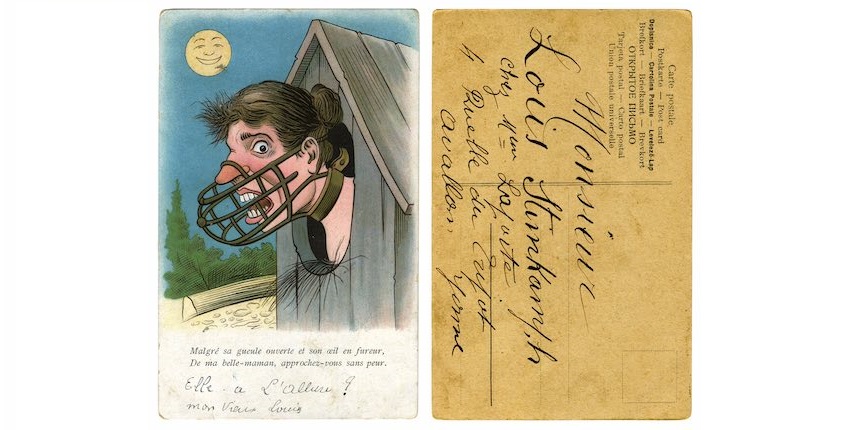 Malgré sa gueule ouverte et son œil en fureur,
De ma belle-maman, approchez-vous sans peur.
Elle a L'allure ?
mon vieux Louis
Carte postale
Postkarte — Post card
Dopisnica — Cartolina Postale — Levelező-Lap
Brefkort — Briefkaart — Brevkort
ОТКРЫТОЕ ПИСЬМО
Tarjeta postal — Carto postal
Union postale universelle
Monsieur
Louis Stimkamph
chez Mme Laporte
4 Ruelle du
Avallon
Yonne